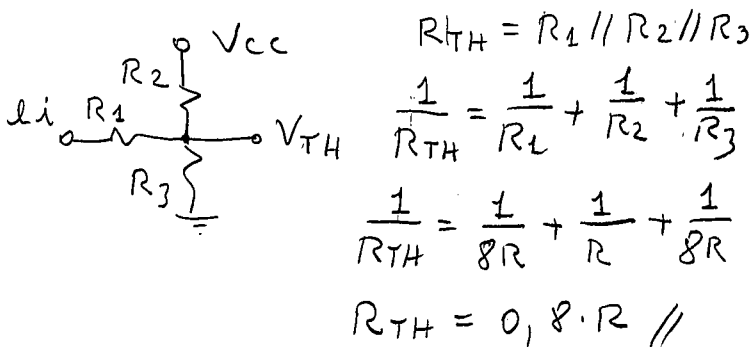 Vcc
R2
ei R1
VTH
R3
RTH = R1 // R2 // R3
1/RTH = 1/R1 + 1/R2 + 1/R3
1/RTH = 1/8R + 1/R + 1/8R
RTH = 0,8·R //